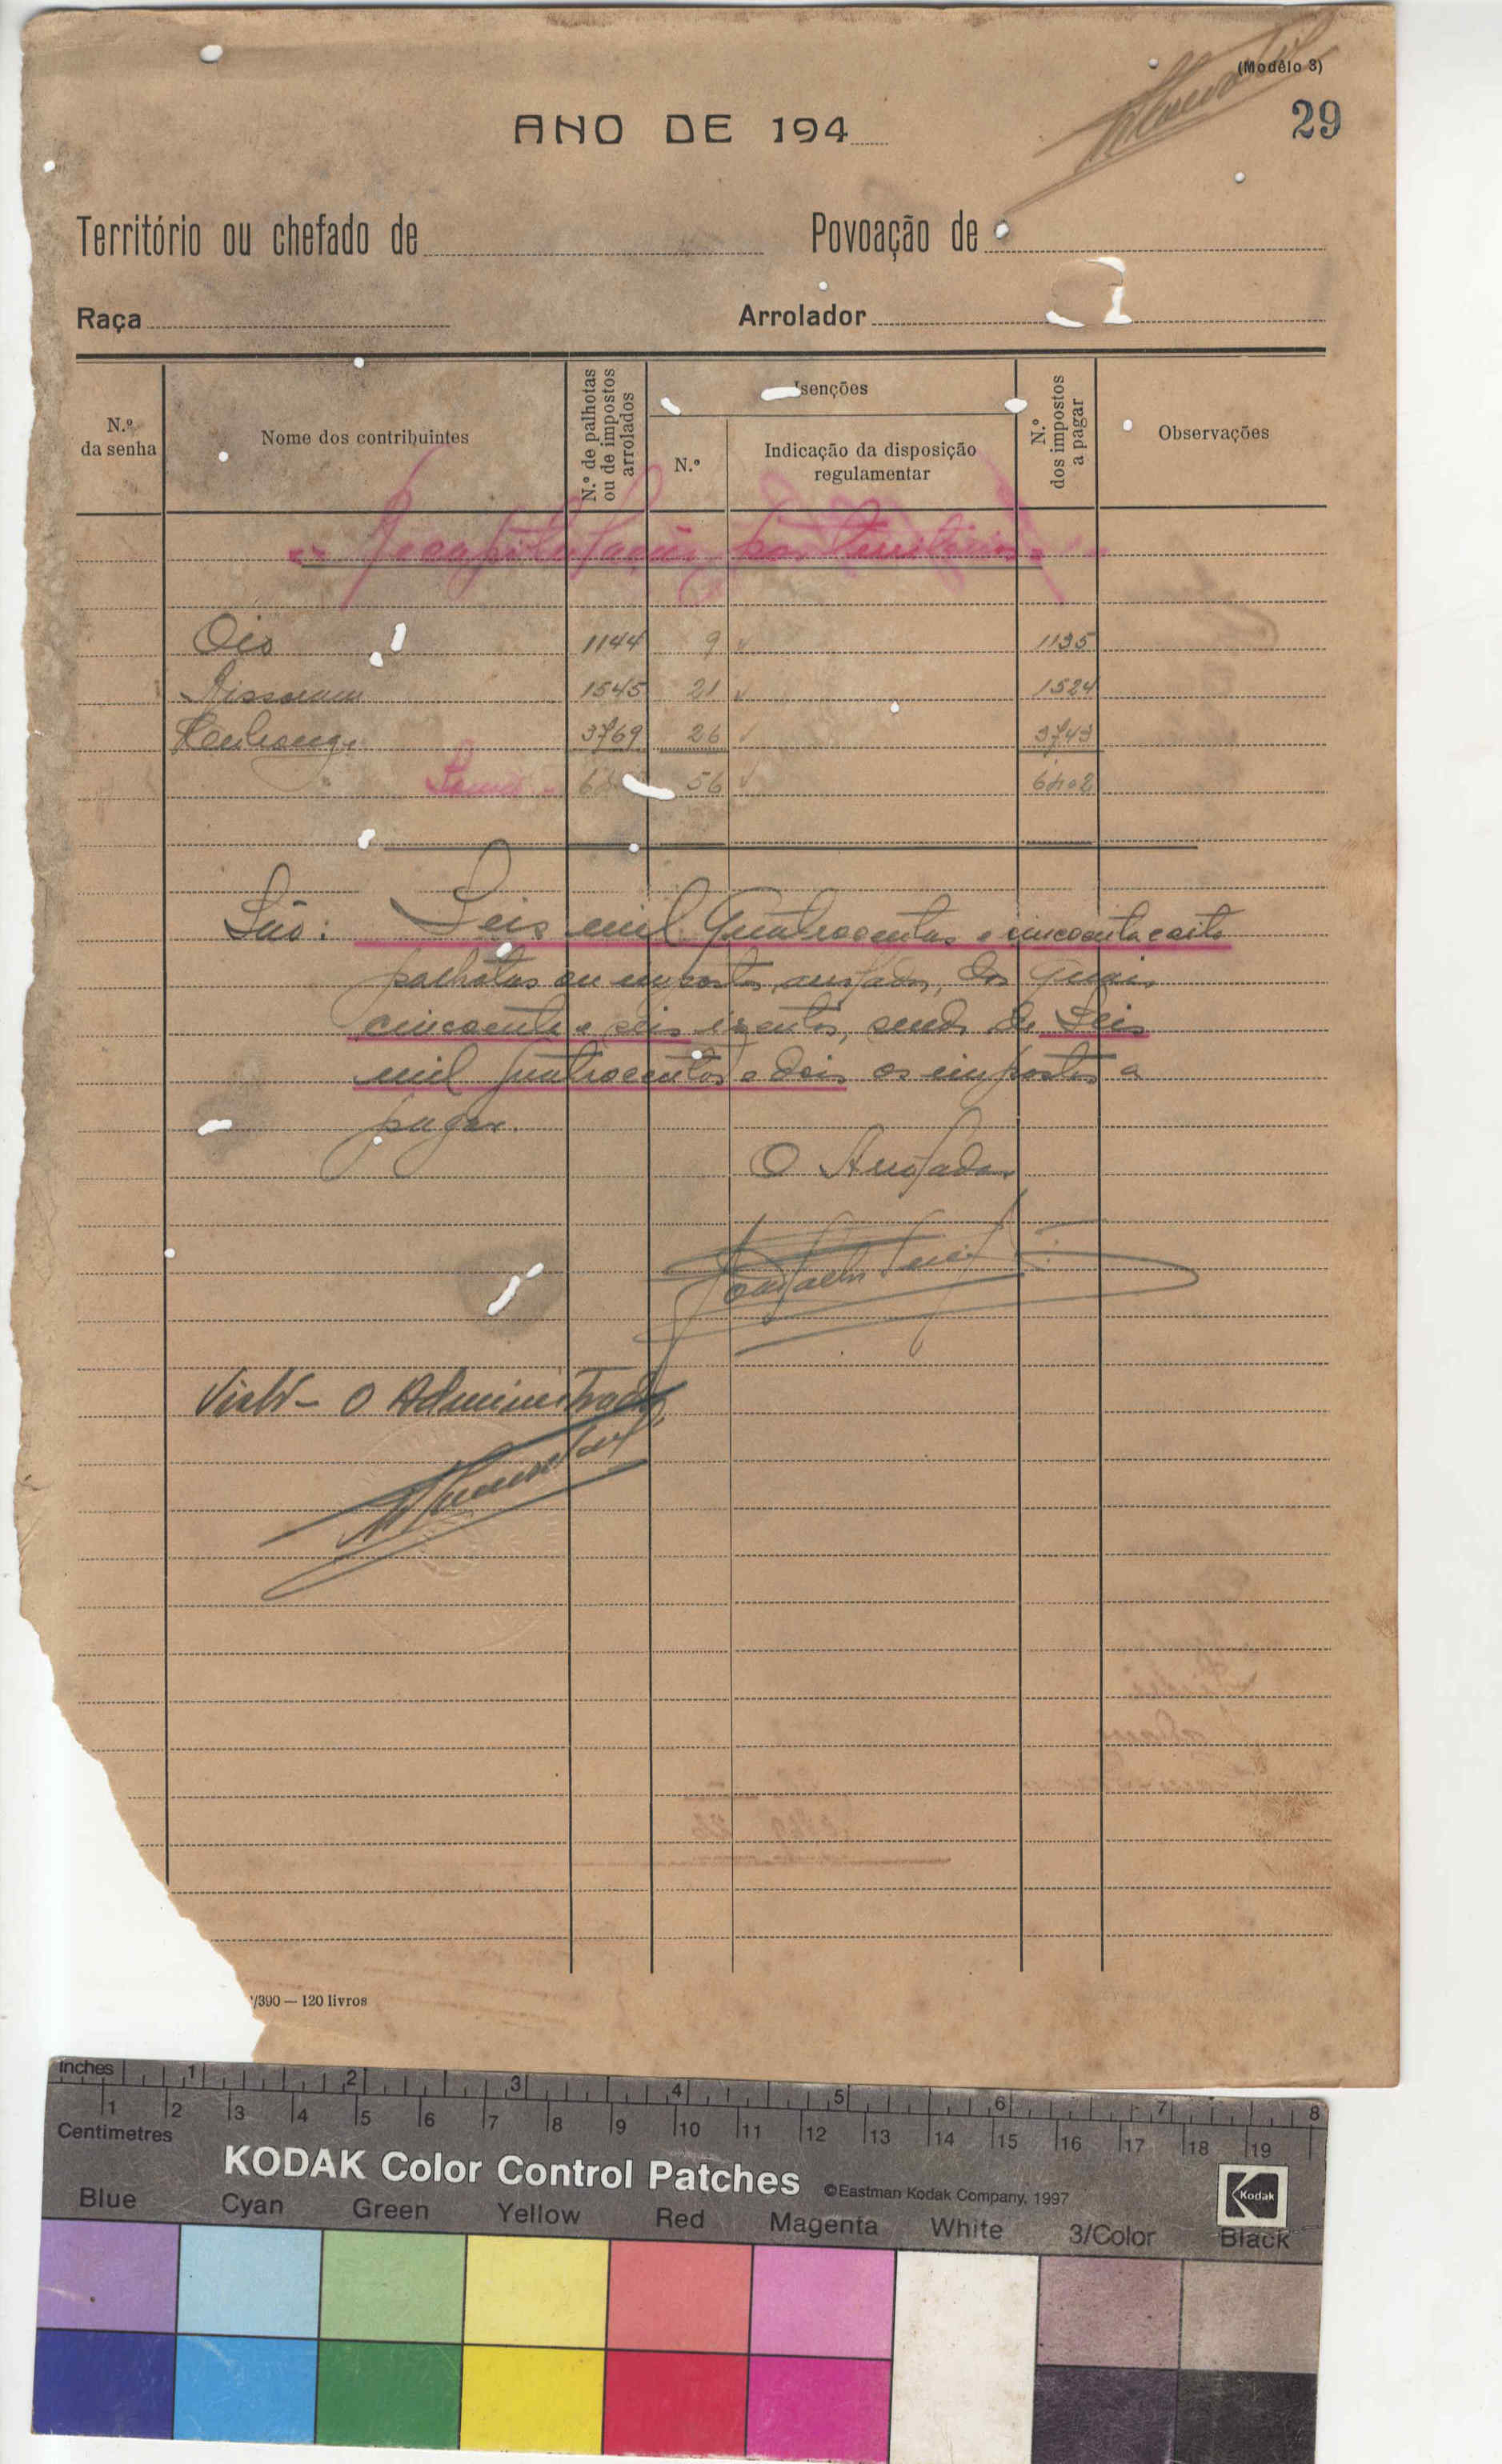 (Modêlo 3)
29
ANO DE 194
Território ou chefado de Povoação de
Raça Arrolador
N.º da senha Nome dos contribuintes N.º de palhotas ou de impostos arrolados senções N.º Indicação da disposição regulamentar N.º dos impostos a pagar Observações
Recapitulação por Territórios
Oio 1144 9 1135
Bissoram 1545 21 1524
3769 26 3743
Soma 56 6402
São: Seis mil quatrocentas e cincoenta e oito
palhotas ou impostos arrolados, dos quais
cincoenta e seis isentos, sendo de Seis
mil quatrocentos e dois os impostos a
pagar.
O Arrolador
Visto - O Administrador,
/390 — 120 livros
Inches 1 2 3 4 5 6 7 8
Centimetres 1 2 3 4 5 6 7 8 9 10 11 12 13 14 15 16 17 18 19
KODAK Color Control Patches ©Eastman Kodak Company, 1997 Kodak
Blue Cyan Green Yellow Red Magenta White 3/Color Black